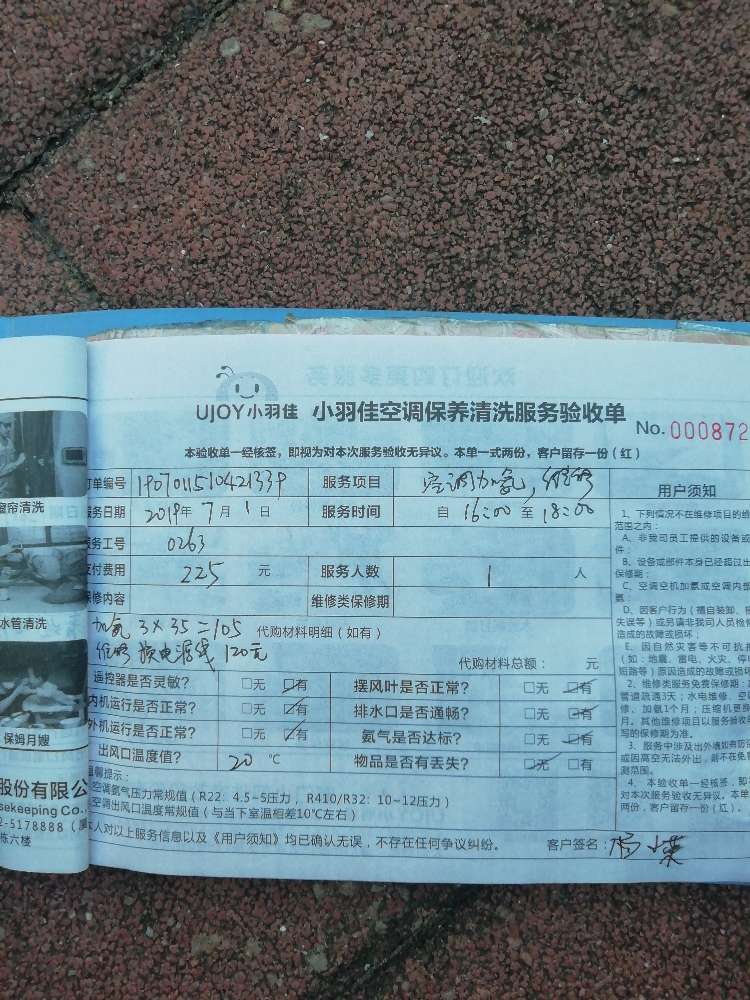 UJOY小羽佳 小羽佳空调保养清洗服务验收单
No. 000872
本验收单一经核签，即视为对本次服务验收无异议。本单一式两份，客户留存一份（红）
单编号 1907011510421339 服务项目 空调加氟，维修
服务日期 2019年7月1日 服务时间 自 16:00 至 18:00
务工号 0263
支付费用 225 元 服务人数 1 人
保修内容 维修类保修期
加氟 3×35=105 代购材料明细（如有）
维修 换电源线 120元
代购材料总额： 元
遥控器是否灵敏？ □无 □有 摆风叶是否正常？ □无 □有
内机运行是否正常？ □无 □有 排水口是否通畅？ □无 □有
外机运行是否正常？ □无 □有 氨气是否达标？ □无 □有
出风口温度值？ 20 ℃ 物品是否有丢失？ □无 □有
温馨提示：
空调氨气压力常规值（R22：4.5~5压力，R410/R32：10~12压力）
空调出风口温度常规值（与当下室温相差10℃左右）
本人对以上服务信息以及《用户须知》均已确认无误，不存在任何争议纠纷。 客户签名：
用户须知
1、下列情况不在维修项目的维
范围之内：
A、非我司员工提供的设备或
件；
B、设备或部件本身已经超过出
保修期；
C、空调空机加氨或空调内部
氨；
D、因客户行为（擅自装卸、
失误等）或另请非我司人员检修
造成的故障或损坏；
E、因自然灾害等不可抗
（如：地震、雷电、火灾、停
短路等）原因造成的故障或损坏
2、维修类服务免费保修期：
管道疏通3天；水电维修、
修、加氨1个月；压缩机更换
月。其他维修项目以服务验收单
写的保修期为准。
3、服务中涉及出外墙如有防
或因高空无法外出，则不在免
测范围。
4、本验收单一经核签，即
对本次服务验收无异议。本单
两份，客户留存一份（红）。
窗帘清洗
水管清洗
保姆月嫂
股份有限公
sekeeping Co.,
2-5178888
栋六楼